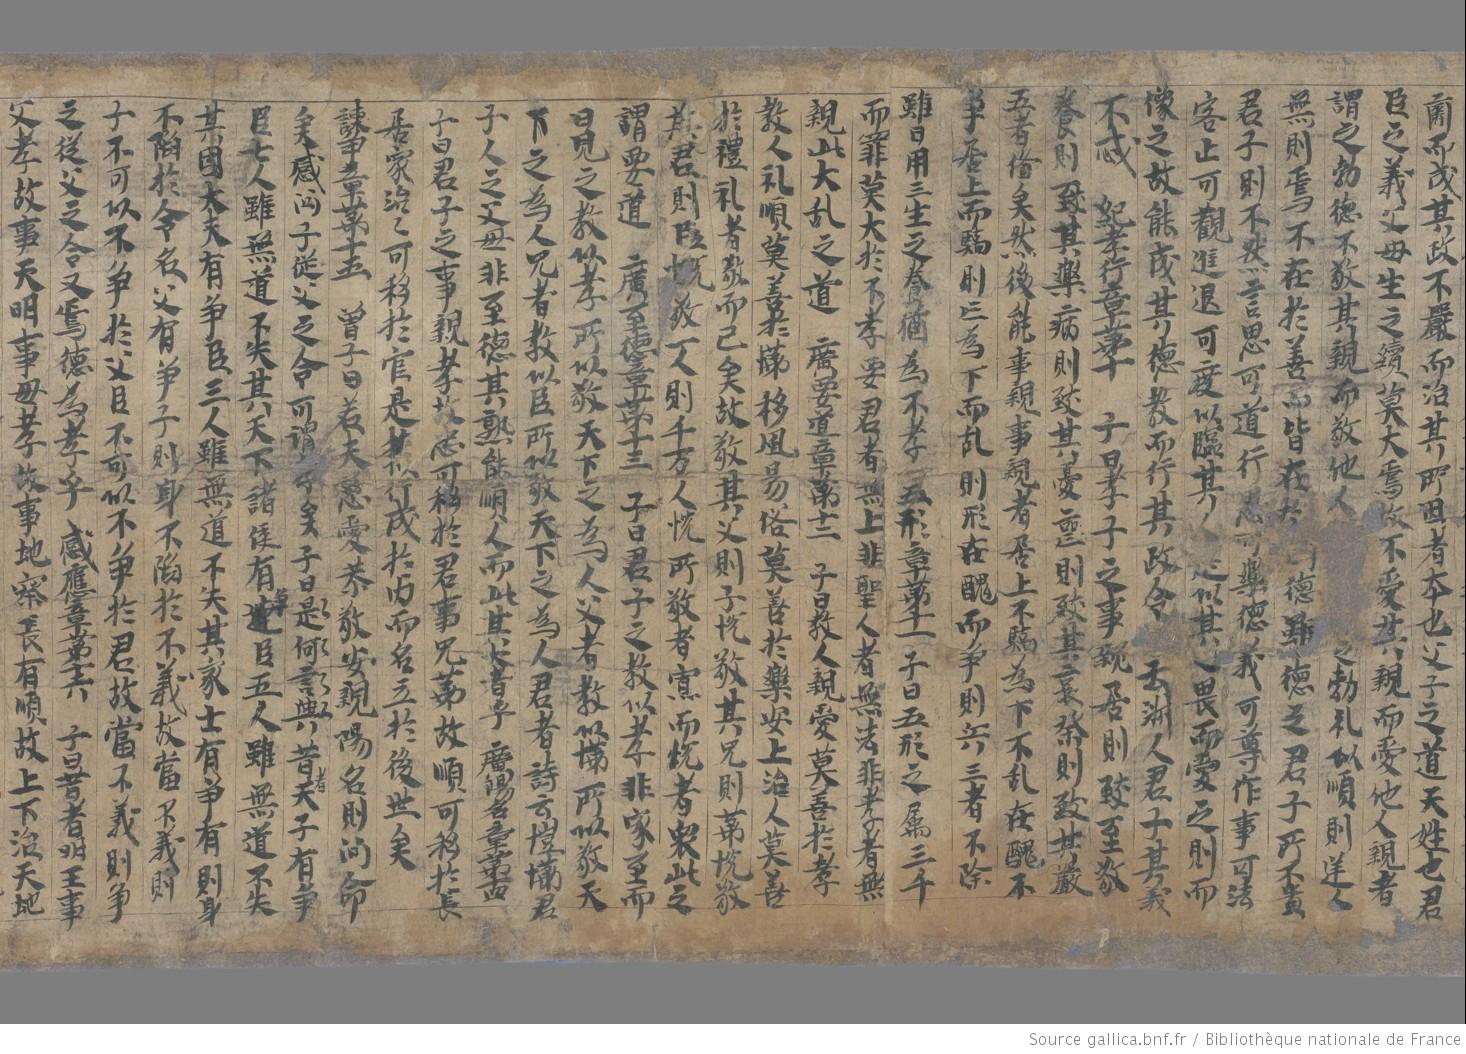 肅而成其政不嚴而治其所因者本也父子之道天姓也君
臣之義父母生之續莫大焉故不愛其親而愛他人親者
謂之勃德不敬其親而敬他人之勃礼以順則逆人
無則焉不在於善而皆在於德雖德之君子所不貴
君子則不然言思可道行思可樂德義可尊作事可法
容止可觀進退可度以臨其人是以其人畏而愛之則而
像之故能成其德教而行其政令 云淑人君子其義
不忒 紀孝行章第十 子曰孝子之事親居則致至敬
養則致其樂病則致其憂喪則致其哀祭則致其嚴
五者俻矣然後能事親事親者居上不驕為下不乱在醜不
爭居上而驕則亡為下而乱則形在醜而爭則兵三者不除
雖日用三牲之養猶為不孝 五形章第十一 子曰五形之属三千
而罪莫大於不孝要君者無上非聖人者無法非孝者無
親此大乱之道 廣要道章第十二 子曰教人親愛莫善於孝
教人礼順莫善於悌移風易俗莫善於樂安上治人莫善
於禮礼者敬而已矣故敬其父則子恱敬其兄則弟恱敬
其君則臣恱敬一人則千万人恱所敬者寡而恱者衆此之
謂要道 廣至德章第十三 子曰君子之教以孝非家至而
日見之教以孝所以敬天下之為人父者教以悌所以敬天
下之為人兄者教以臣所以敬天下之為人君者詩云愷悌君
子人之父母非至德其熟能順人而此其大者乎 廣揚名章第十四
子曰君子之事親孝故忠可移於君事兄弟故順可移於長
居家治〻可移於官是以行成於内而名立於後世矣
諫爭章第十五 曾子曰若夫慈愛恭敬安親揚名則問命
矣感問子從父之令可謂孝矣子曰是何言與昔者天子有爭
臣七人雖無道不失其天下諸侯有爭臣五人雖無道不失
其國大夫有爭臣三人雖無道不失其家士有爭有則身
不陷於令名父有爭子則身不陷於不義故當不義則
子不可以不爭於父臣不可以不爭於君故當不義則爭
之從父之令又焉德為孝乎 感應章第十六 子曰昔者明王事
父孝故事天明事母孝故事地察長有順故上下治天地
Source gallica.bnf.fr / Bibliothèque nationale de France